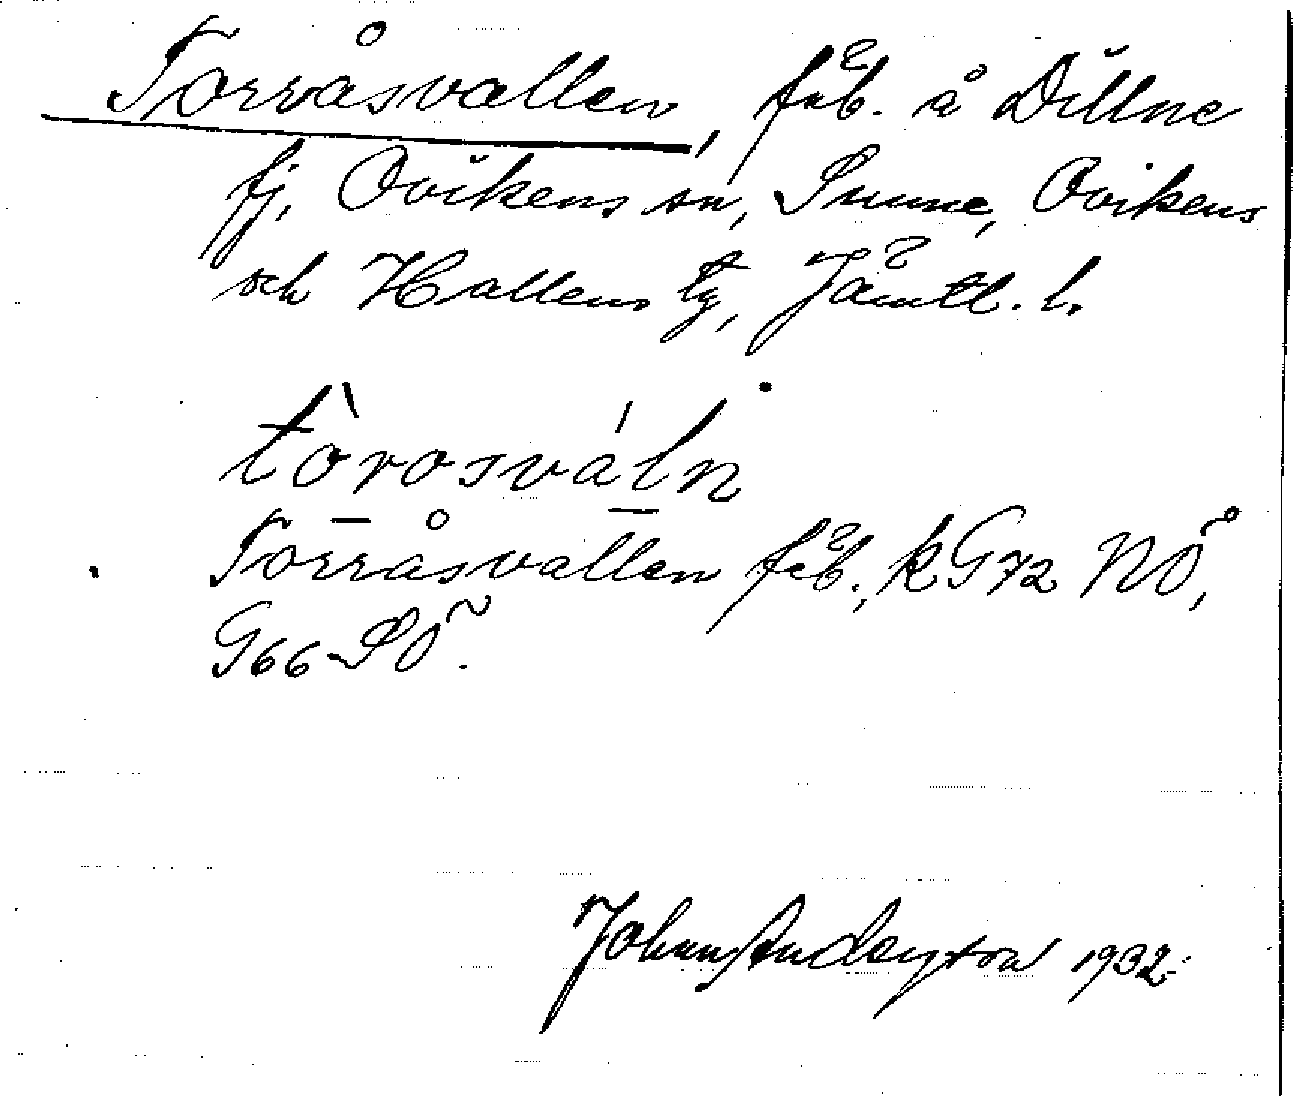 Torråsvallen, fäb. å Dillne
fj, Ovikens sn, Sunne, Ovikens
och Hallens tg, Jämtl. l.
tòrosváln
Torråsvallen fäb., k G72 NÖ,
G66 SÖ.
Johan 1932.